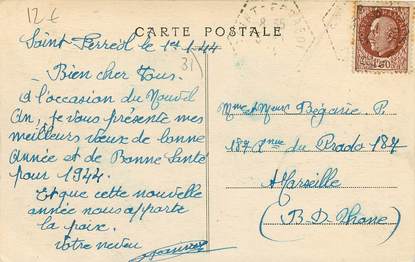 12€
CARTE POSTALE
Saint Ferréol le 1er 1/44
31
Bien cher Tous.
A l'occasion du Nouvel
An, je vous présente mes
meilleurs vœux de bonne
Année et de Bonne Santé
pour 1944.
Et que cette nouvelle
année nous apporte
la paix.
votre neveu
Mme & Meur Bégarie P.
187 Anue du Prado 187
Marseille
(B. D. Rhone)
1F50